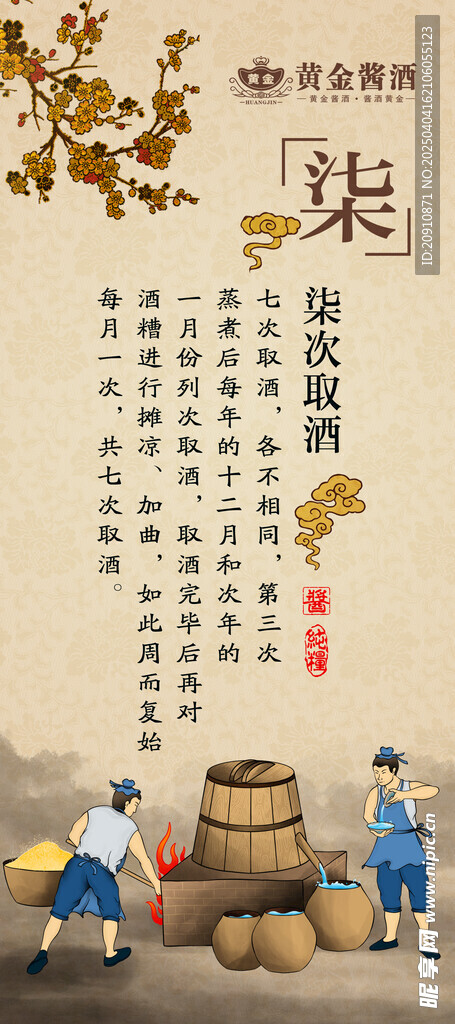 黄金
HUANGJIN
黄金酱酒
黄金酱酒·酱酒黄金
「柒」
柒次取酒
七次取酒，各不相同，第三次
蒸煮后每年的十二月和次年的
一月份列次取酒，取酒完毕后再对
酒糟进行摊凉、加曲，如此周而复始
每月一次，共七次取酒。
醬
純糧
ID:20910871 NO:20250404162106055123
昵享网 www.nipic.cn